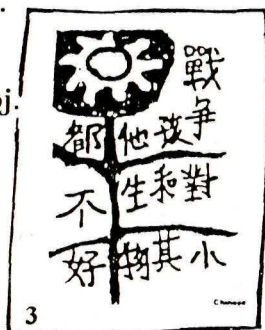 戰争對小
孩和其
他生物
都不好
Chinese
3